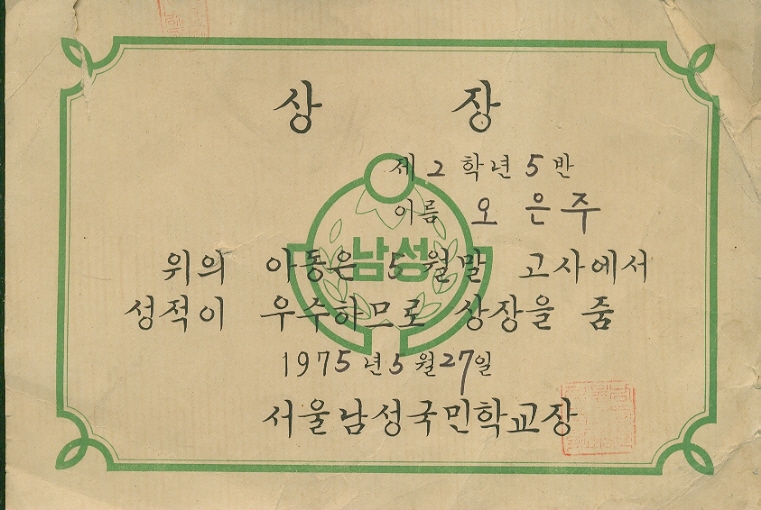 상 장
제 2 학년 5 반
이름 오 은 주
남성
위의 아동은 5 월말 고사에서
성적이 우수하므로 상장을 줌
1975 년 5 월 27 일
서울남성국민학교장